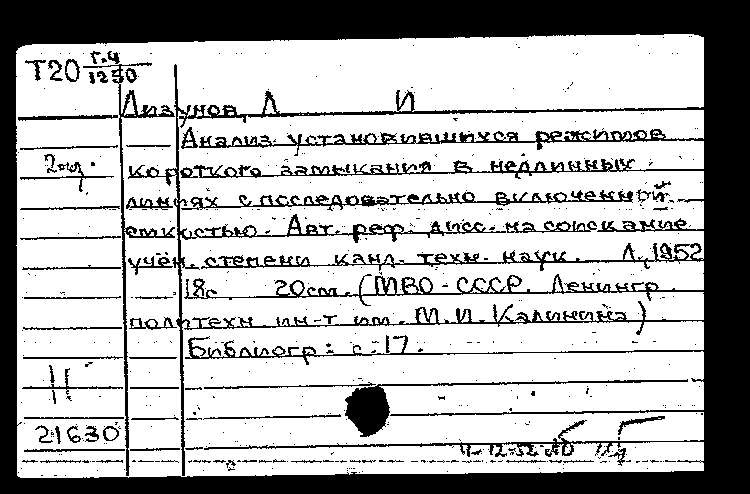 Т20 Г.4
1250
Лизунов, Л И
Анализ установившихся режимов
2экз.
короткого замыкания в недлинных
линиях с последовательно включенной
емкостью. Авт. реф. дисс. на соискание
учён. степени канд. техн. наук. Л., 1952
18с. 20см. (МВО-СССР. Ленингр.
политехн. ин-т им. М.И. Калинина)
Библиогр: с. 17.
21630